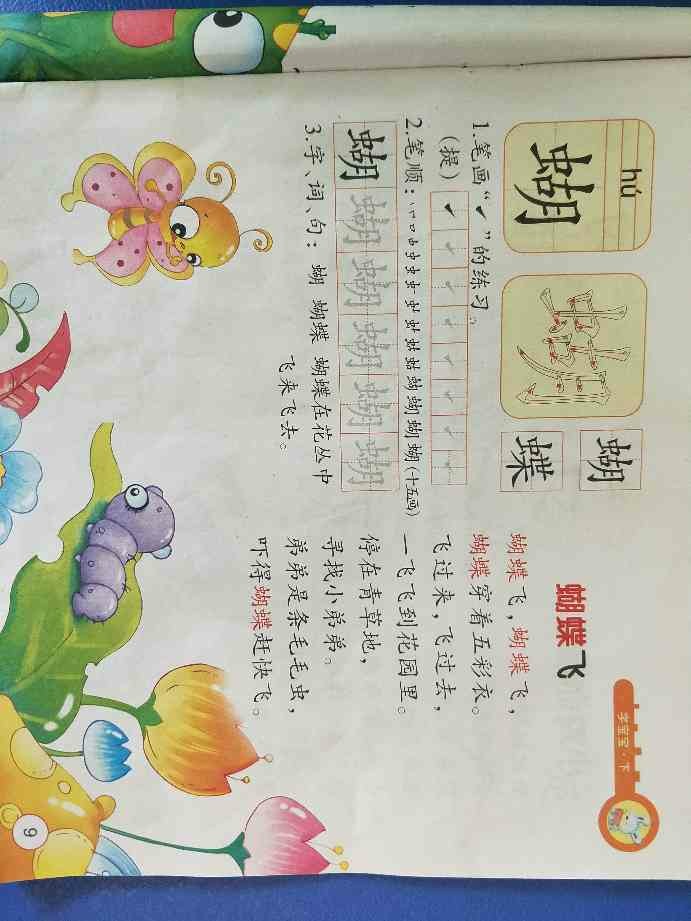 字宝宝·下
hú
蝴
蝴
蝶
1.笔画“㇀”的练习。
(提)
2.笔顺：
(十五画)
蝴 蝴 蝴 蝴 蝴 蝴
3.字、词、句： 蝴 蝴蝶 蝴蝶在花丛中
飞来飞去。
蝴蝶飞
蝴蝶飞，蝴蝶飞，
蝴蝶穿着五彩衣。
飞过来，飞过去，
一飞飞到花园里。
停在青草地，
寻找小弟弟。
弟弟是条毛毛虫，
吓得蝴蝶赶快飞。
9